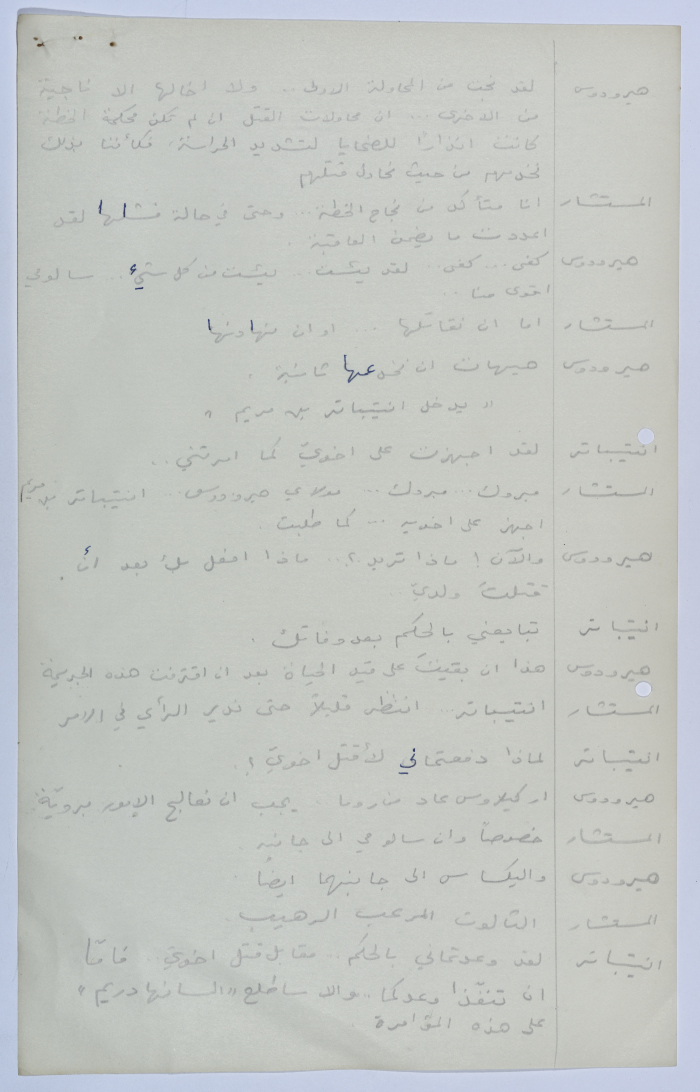 هيرودوس لقد نجت من المحاولة الاولى .. ولا اخالها الا ناجية
من الاخرى ... ان محاولات القتل ان لم تكن محكمة الخطة
كانت انذاراً للضحايا لتشديد الحراسة، فكأننا بذلك
نخدمهم من حيث نحاول قتلهم
المستشار انا متأكد من نجاح الخطة ... وحتى في حالة فشلها لقد
اعددت ما يضمن العاقبة .
هيرودوس كفى ... كفى .. لقد يئست .. يئست من كل شيء .. سالومي
اقوى منا ..
المستشار اما ان نقاتلها ... او ان نهادنها
هيرودوس هيهات ان نخدعها ثانية .
" يدخل انتيباتر بن مريم "
انتيباتر لقد اجهزت على اخويّ كما امرتني ..
المستشار مبروك ... مبروك ... مولاي هيرودوس ... انتيباتر بن مريم
اجهز على اخويه ... كما طلبت .
هيرودوس والآن ! ماذا تريد ؟ .. ماذا افعل لك بعد أن .
قتلتَ ولديّ ..
انتيباتر تبايعني بالحكم بعد وفاتك .
هيرودوس هذا ان بقيتَ على قيد الحياة بعد ان اقترفت هذه الجريمة
المستشار انتيباتر ... انتظر قليلاً حتى ندير الرأي في الامر
انتيباتر لماذا دفعتماني لأقتل اخويّ ؟ .
هيرودوس اركيلاوس عاد من روما . يجب ان نعالج الامور برويّة .
المستشار خصوصاً وان سالومي الى جانبه .
هيرودوس واليكساس الى جانبهما ايضاً
المستشار الثالوث المرعب الرهيب .
انتيباتر لقد وعدتماني بالحكم .. مقابل قتل اخويّ .. فامّا
ان تنفّذا وعدكما .. والا سأطلع "السانهادريم"
على هذه المؤامرة .